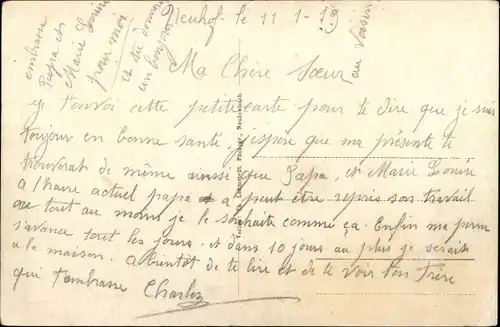 Neuhof le 11 1 - 19
embrasse
Papa et
Marie Louise
pour moi
et du donner
un bonjour
au voisin
Ma Chère Sœur
Je t'envoi cette petite carte pour te dire que je suis
toujour en bonne santé, j'espère que ma présente te
trouverat de même aussi que Papa, et Marie Louise
a l'heure actuel papa a peut être repris son travail
ou tout au moins je le souhaite comme ça. Enfin ma perm
s'avance tout les jours. et dans 10 jours au plus je serais
a la maison. a bientôt de te lire et de te voir Ton Frère
qui t'embrasse Charles